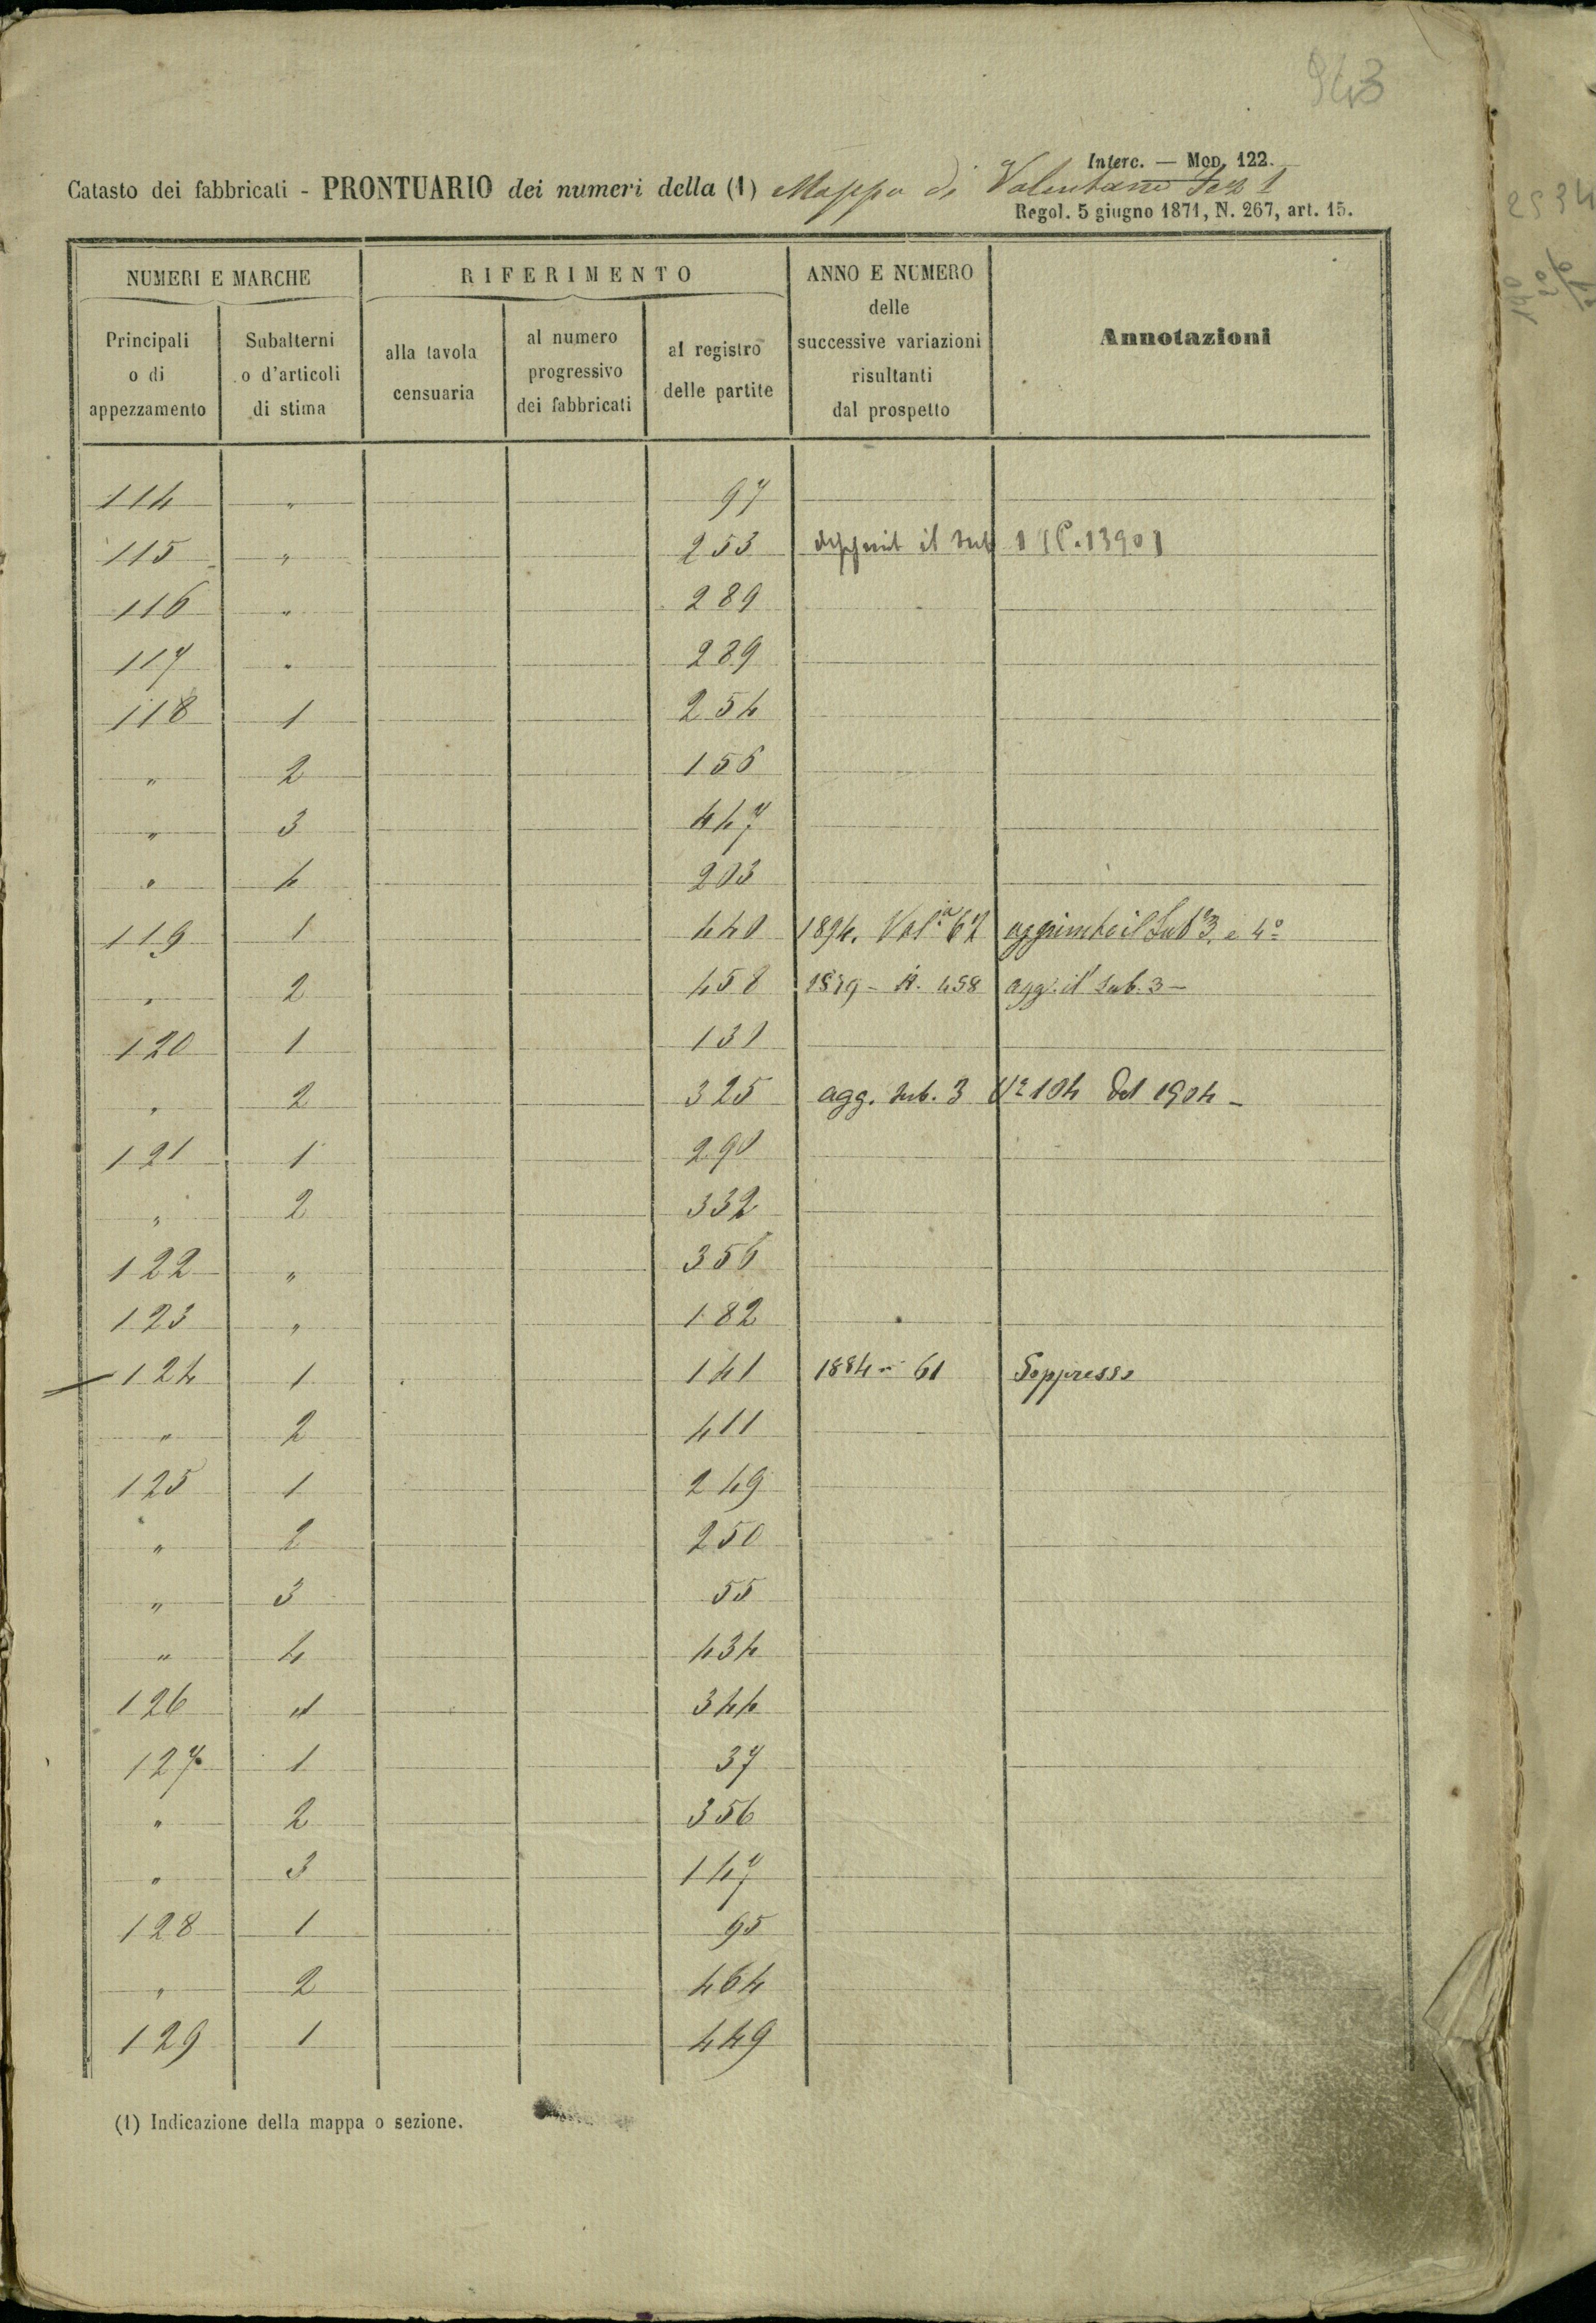 943
Interc. — MOD. 122.
Catasto dei fabbricati - PRONTUARIO dei numeri della (1) Mappa di Valentano Sez 1
Regol. 5 giugno 1871, N. 267, art. 15.
NUMERI E MARCHE
RIFERIMENTO
ANNO E NUMERO delle successive variazioni risultanti dal prospetto
Annotazioni
Principali o di appezzamento
Subalterni o d'articoli di stima
alla tavola censuaria
al numero progressivo dei fabbricati
al registro delle partite
114 " 97
115 " 253 il sub 1
116 " 289
117 " 289
118 1 254
" 2 156
" 3 447
" 4 203
119 1 440 1894. Val.ª 62 aggiunto il Sub 3. e 4º
" 2 458 458 agg. il sub. 3 —
120 1 131
" 2 325 agg. sub. 3 104 del 1904 —
121 1 290
" 2 332
122 " 356
123 " 182
124 1 141 1884 - 61 Soppresso
" 2 411
125 1 249
" 2 250
" 3 55
" 4 434
126 " 344
127 1 37
" 2 356
" 3 147
128 1 95
" 2 464
129 1 449
(1) Indicazione della mappa o sezione.